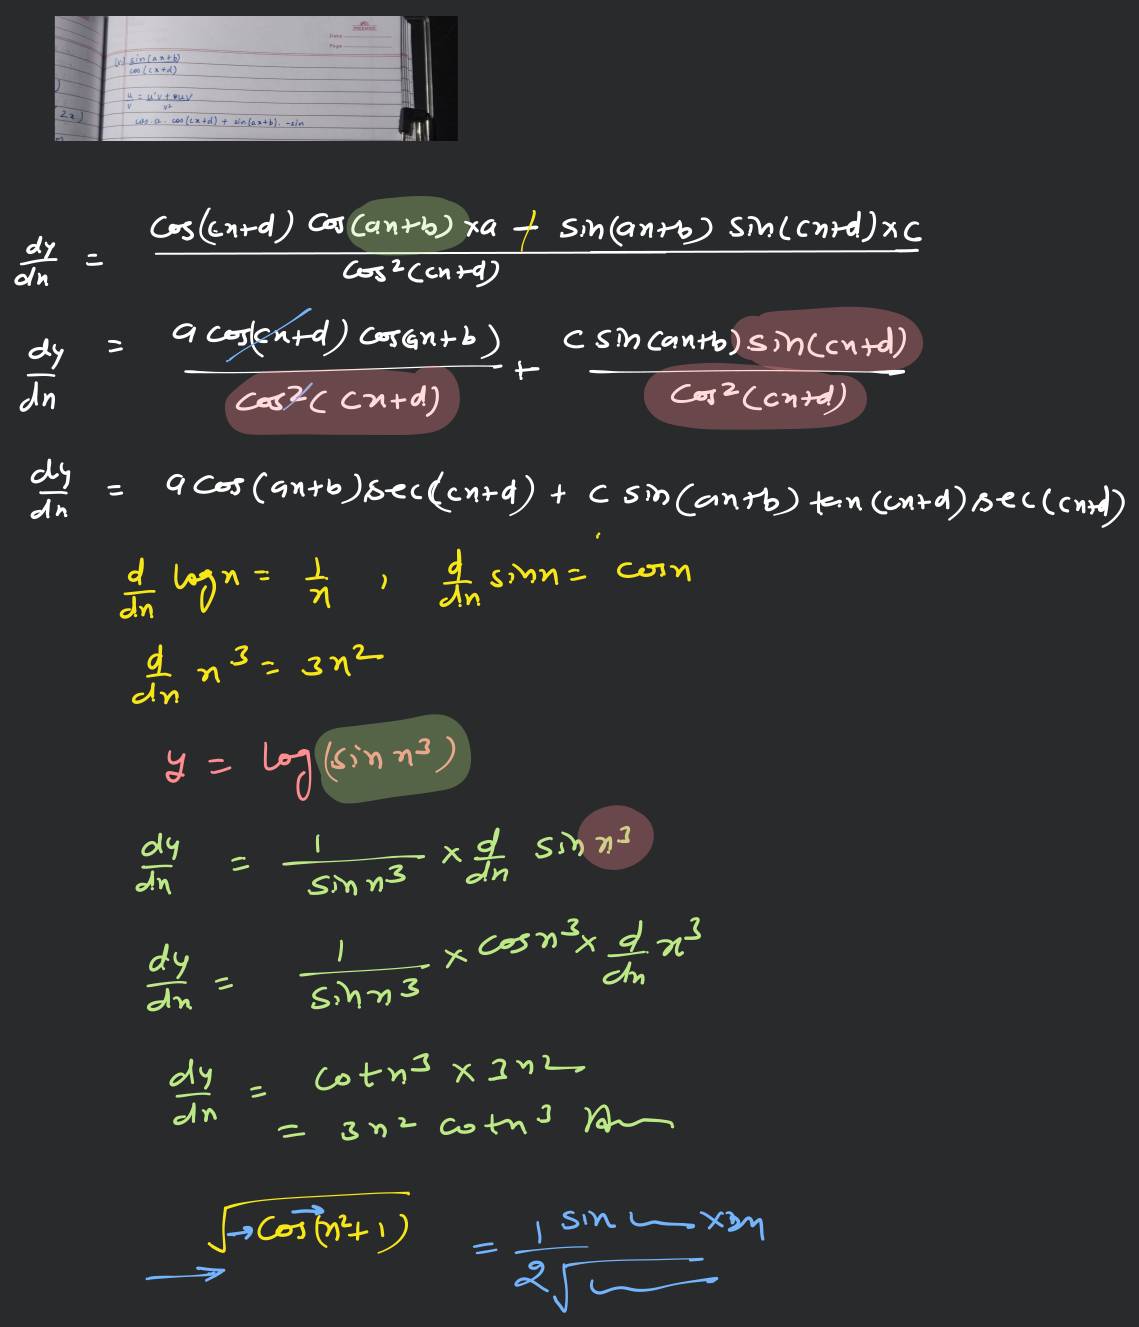 Date
Page
(v) sin(ax+b)
cos(cx+d)
u/v = u'v + uv' / v²
2x)
cos.a. cos(cx+d) + sin(ax+b). -sin
dy/dx = cos(cx+d) cos(ax+b) × a + sin(ax+b) sin(cx+d) × c / cos²(cx+d)
dy/dx = a cos(cx+d) cos(ax+b) / cos²(cx+d) + c sin(ax+b) sin(cx+d) / cos²(cx+d)
dy/dx = a cos(ax+b) sec(cx+d) + c sin(ax+b) tan(cx+d) sec(cx+d)
d/dx log x = 1/x , d/dx sin x = cos x
d/dx x³ = 3x²
y = log(sin x³)
dy/dx = 1/sin x³ × d/dx sin x³
dy/dx = 1/sin x³ × cos x³ × d/dx x³
dy/dx = cot x³ × 3x²
= 3x² cot x³ Ans
√cos(x²+1) = 1/2√ sin × 2x